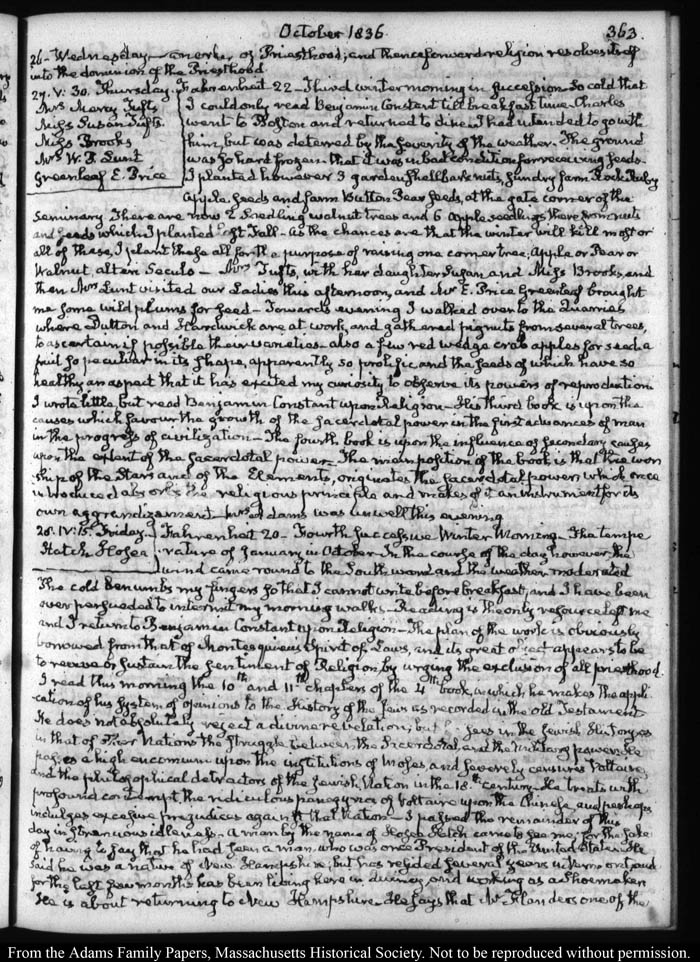 October 1836. 363.
26. Wednesday — another of Priesthood; and thenceforward religion resolves itself
into the dominion of the Priesthood
27. V: 30. Thursday. Fahrenheit 22 — Third winter morning in succession. So cold that
Mrs Mercy Tufts I could only read Benjamin Constant till breakfast time. Charles
Miss Susan Tufts went to Boston and returned to dine. I had intended to go with
Miss Brooks him, but was deterred by the severity of the weather. The ground
Mrs W. P. Lunt was so hard frozen that it was in bad condition for receiving seeds.
Greenleaf E. Price I planted however 3 garden shellbark nuts, sundry farm
Apple seeds and farm Button Pear seeds, at the gate corner of the
Seminary. There are now 2 Seedling walnut trees and 6 apple seedlings there from nuts
and seeds which I planted last Fall — as the chances are that the winter will kill most or
all of these, I plant these all for the purpose of raising one corner tree; Apple or Pear or
Walnut, alteri Seculo — Mrs Tufts, with her daughter Susan and Miss Brooks, and
then Mrs Lunt visited our Ladies this afternoon, and Mr E. Price Greenleaf brought
me some wild plums for seed — Towards evening I walked over to the Quarries
where Dutton and Hardwick are at work, and gathered pignuts from several trees,
to ascertain if possible their varieties — also a few red wedge crab apples for seed a
fruit so peculiar in its shape, apparently so prolific and the seeds of which have so
healthy an aspect that it has excited my curiosity to observe its powers of reproduction.
I wrote little, but read Benjamin Constant upon Religion — His third book is upon the
causes which favour the growth of the sacerdotal power in the first advances of man
in the progress of civilization — The fourth book is upon the influence of secondary causes
upon the extent of the sacerdotal power — The main position of the book is that the wor
ship of the Stars and of the Elements, originates the sacerdotal power which once
introduced absorbs the religious principle and makes of it an instrument for its
own aggrandizement — Mrs Adams was unwell this evening
28. IV: 15. Friday. Fahrenheit 20 — Fourth successive Winter Morning — The tempe
Hatch Hosea rature of January in October. In the course of the day however, the
wind came round to the South and the weather moderated
The cold benumbs my fingers so that I cannot write before breakfast; and I have been
over persuaded to intermit my morning walks — Reading is the only resource left me
and I return to Benjamin Constant upon Religion — The plan of the work is obviously
borrowed from that of Montesquieu's Spirit of Laws, and its great object appears to be
to revive or sustain the sentiment of Religion by urging the exclusion of all priesthood.
I read this morning the 10th and 11th chapters of the 4th book, in which he makes the appli
cation of his System of opinions to the History of the Jews as recorded in the old Testament
He does not absolutely reject a divine revelation; but he sees in the Jewish
in that of other Nations the struggle between the Sacerdotal, and the Military power. He
passes a high encomium upon the institutions of Moses and severely censures Voltaire,
and the philosophical detractors of the Jewish Nation in the 18th century. He treats with
profound contempt, the ridiculous panegyrics of Voltaire upon the Chinese, and perhaps
indulges excessive prejudices against that Nation — I passed the remainder of this
day in strenuous idleness — A man by the name of Hosea Hatch came to see me, for the sake
of having to say that he had seen a man, who was once President of the United States. He
said he was a native of New Hampshire; but has resided several years in Vermont, and
for the last few months has been living here in Quincy, and working as a Shoemaker.
He is about returning to New Hampshire. He says that Mr Flanders one of the
From the Adams Family Papers, Massachusetts Historical Society. Not to be reproduced without permission.